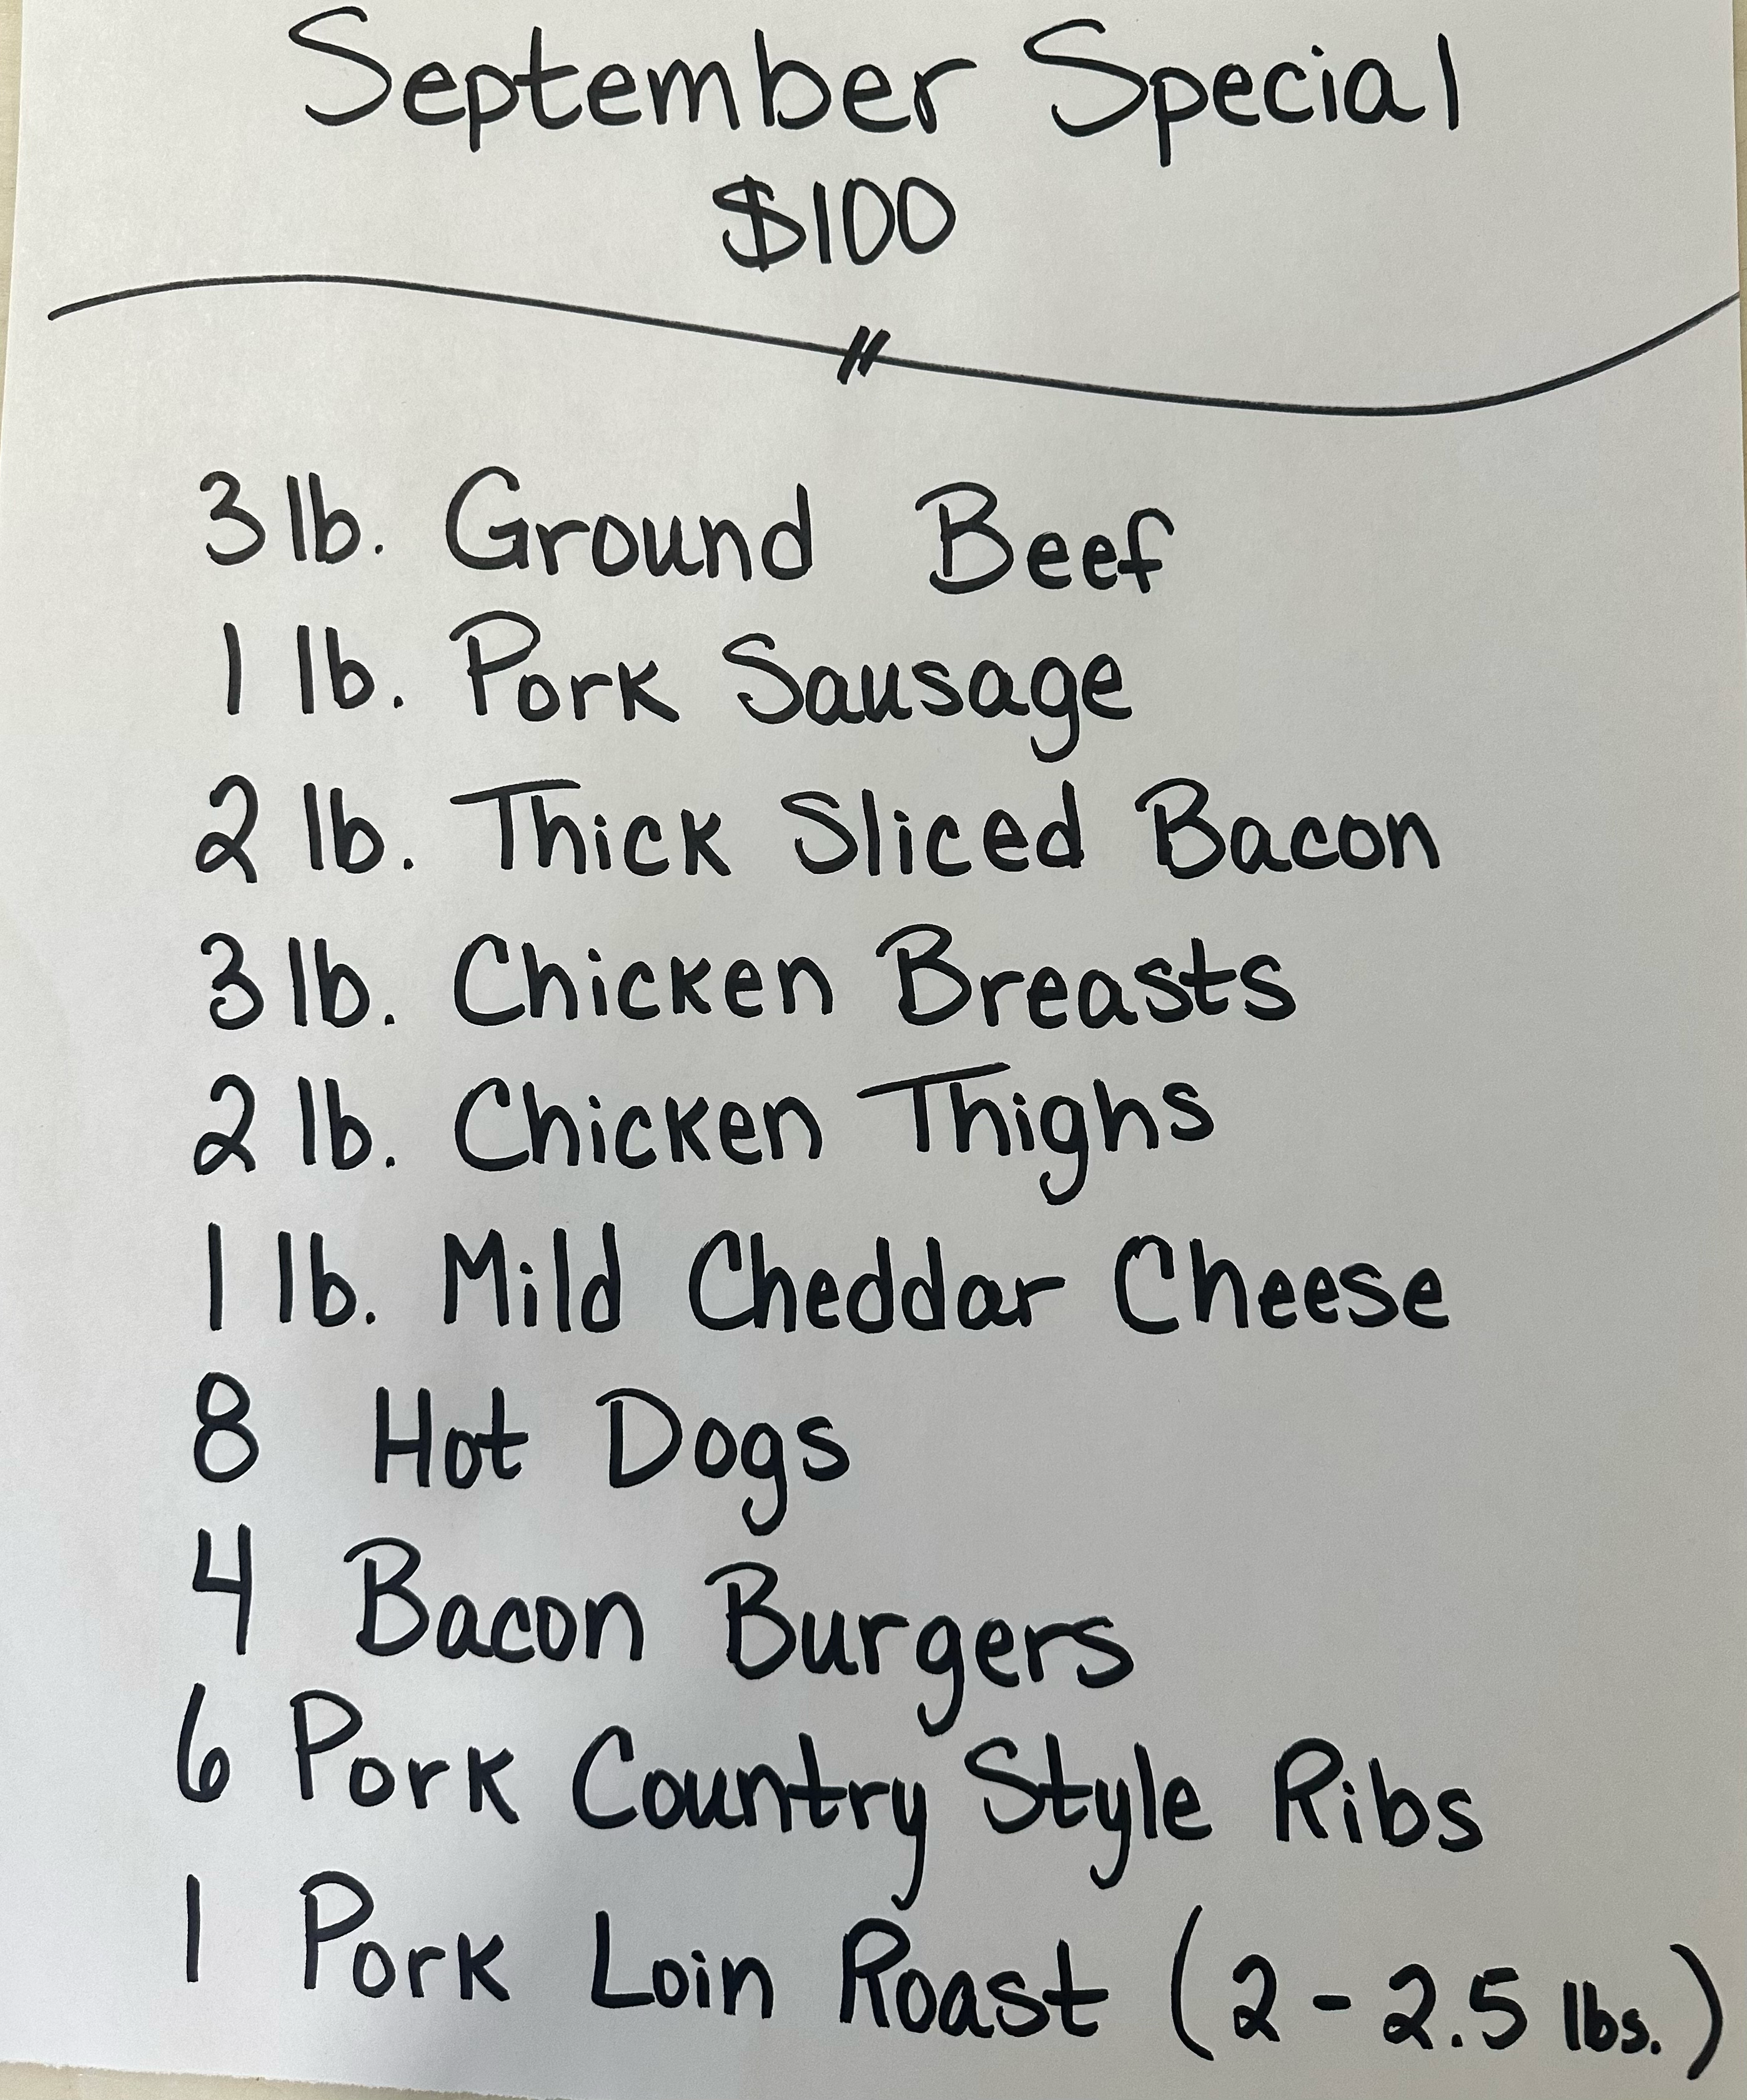 September Special
$100
3 lb. Ground Beef
1 lb. Pork Sausage
2 lb. Thick Sliced Bacon
3 lb. Chicken Breasts
2 lb. Chicken Thighs
1 lb. Mild Cheddar Cheese
8 Hot Dogs
4 Bacon Burgers
6 Pork Country Style Ribs
1 Pork Loin Roast (2 - 2.5 lbs.)